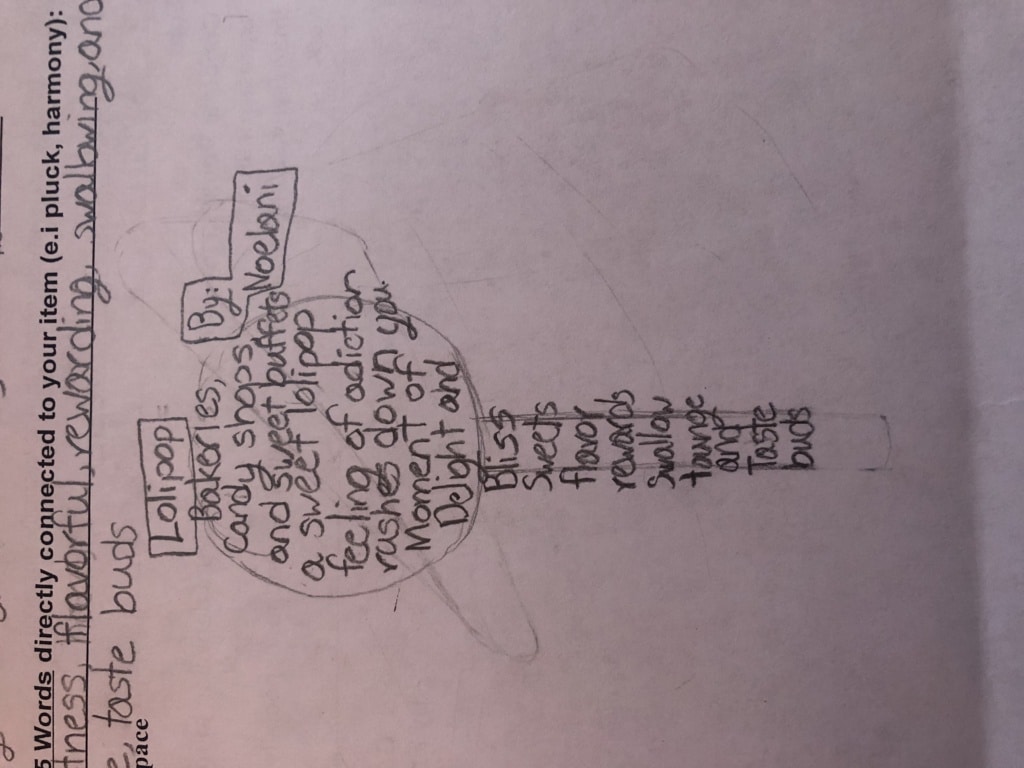 5 Words directly connected to your item (e.i pluck, harmony):
tness, flavorful, rewarding, swallowing, and
e, taste buds
pace
Lolipop
By:
Noelani
Bakeries,
candy shops
and sweet buffets
a sweet lolipop
feeling of adiction
rushes down you
Moment of
Delight and
Bliss
Sweets
flavor
rewards
swallow
tounge
and
Taste
buds